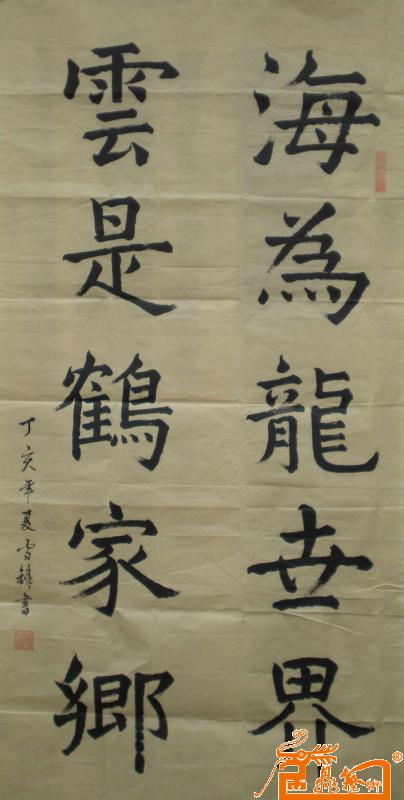 海為龍世界
雲是鶴家鄉
丁亥年夏雪鋒書